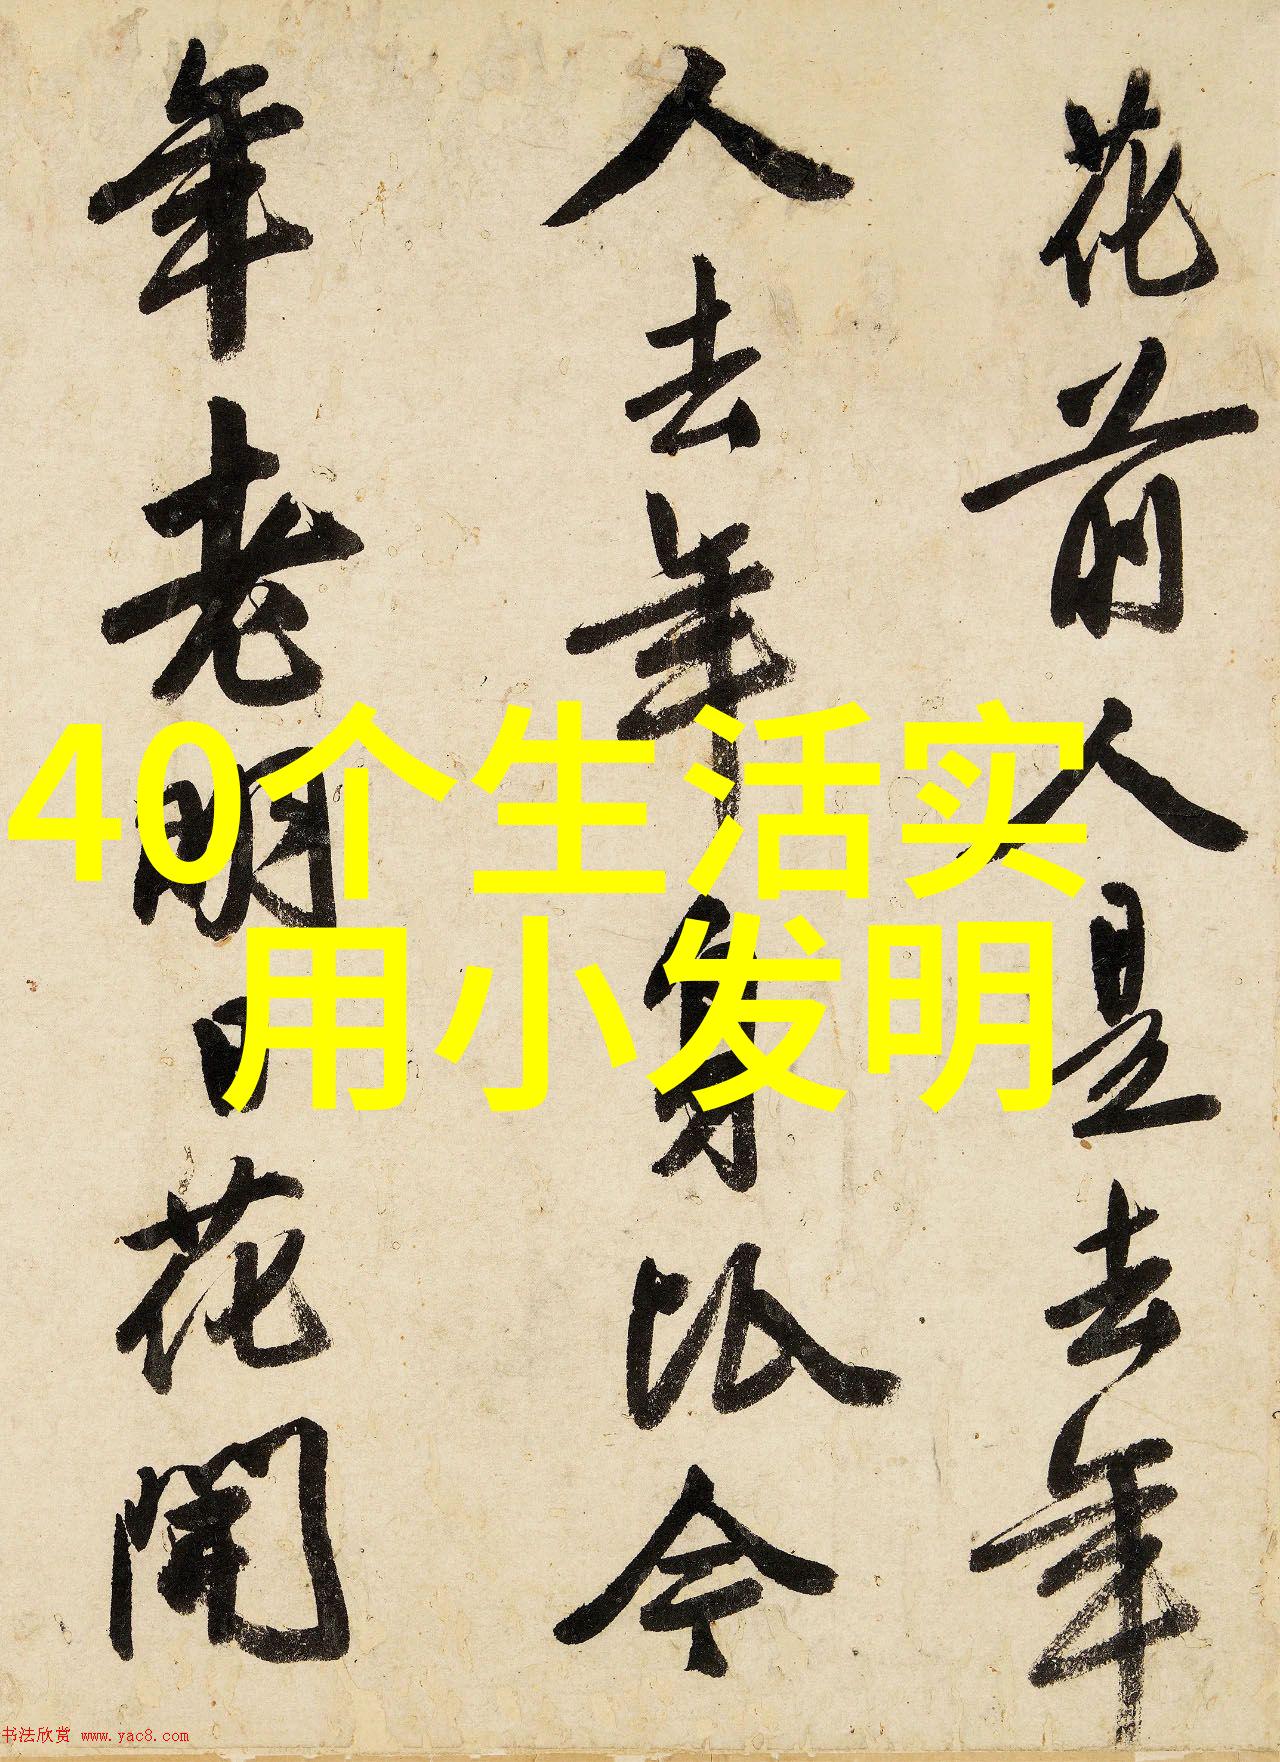 花前人是去年
人去年身比今
年老明日花開
40个生活实
用小发明
书法欣赏 www.yac8.com